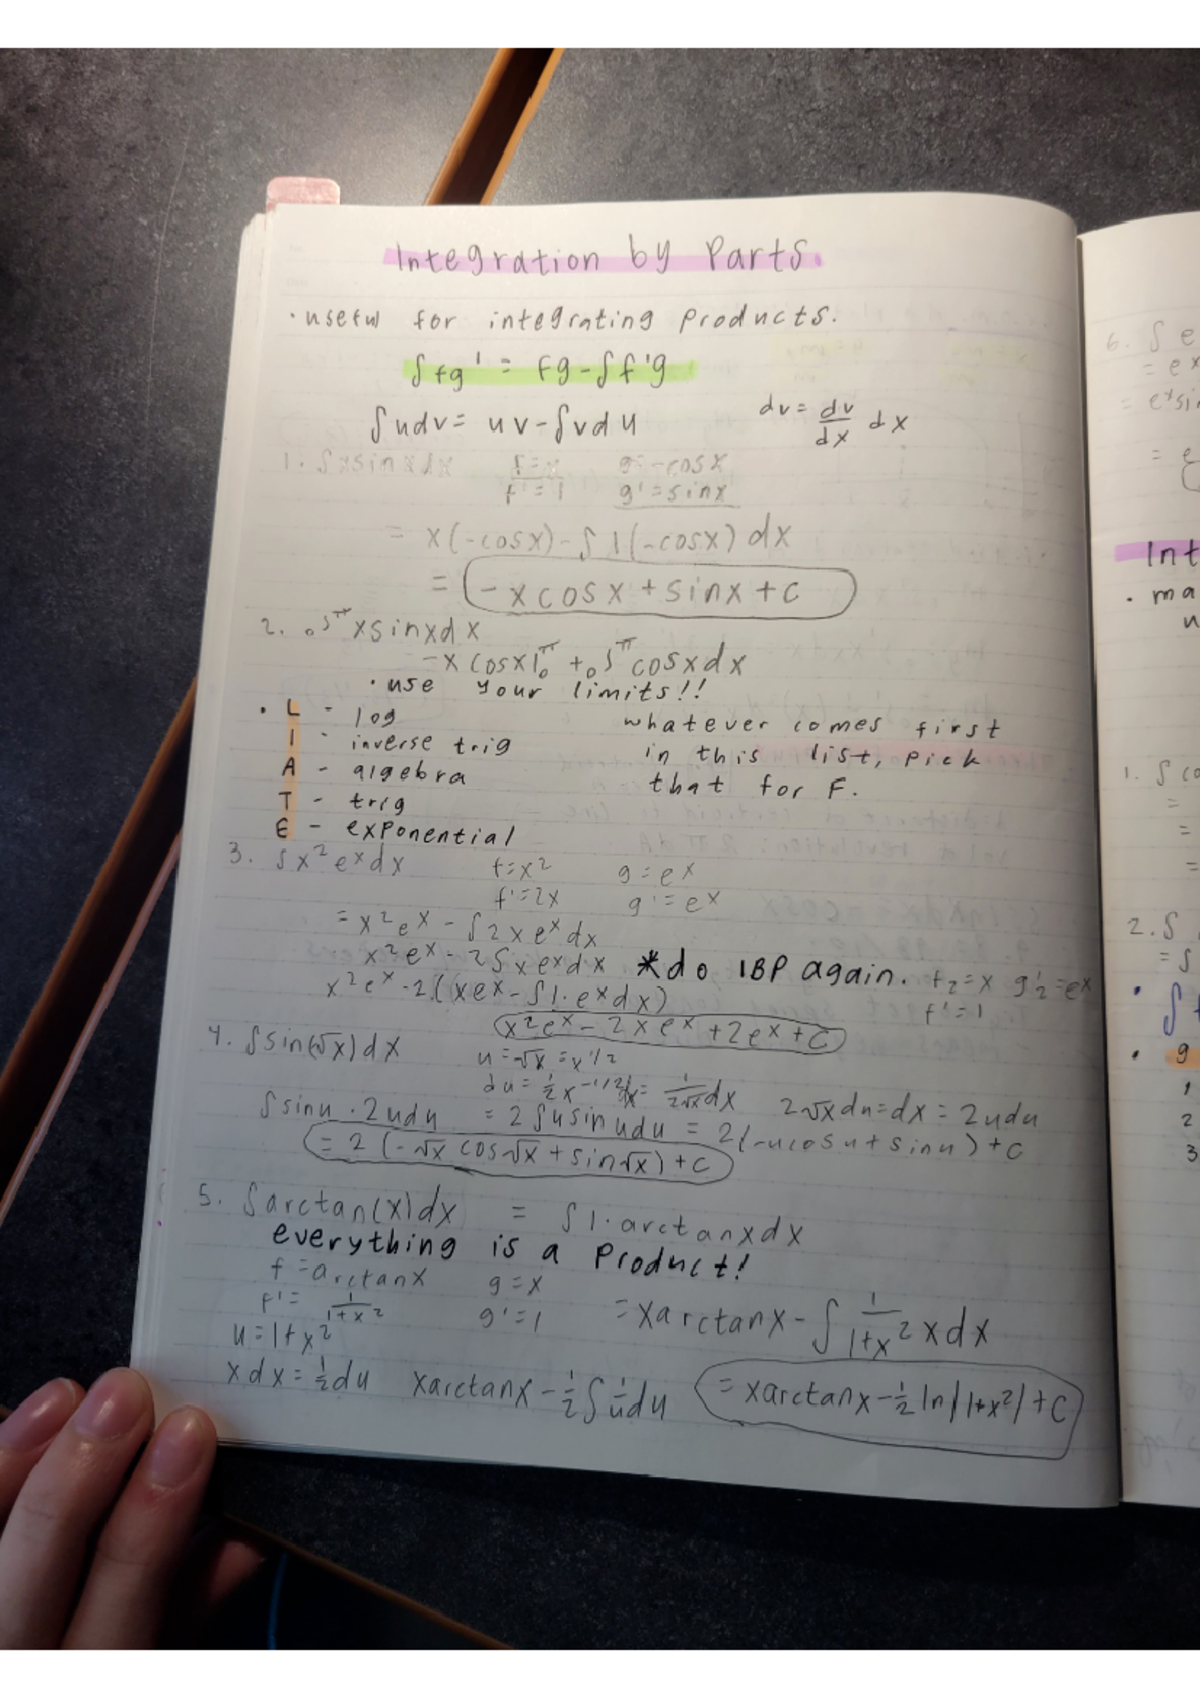 Integration by Parts.
· useful for integrating products.
∫fg' = fg - ∫f'g
∫udv = uv - ∫vdu    dv = dv/dx dx
1. ∫xsinxdx    f=x    g=-cosx
f'=1    g'=sinx
= x(-cosx) - ∫1(-cosx)dx
= -xcosx + sinx + C
2. ₀∫^π xsinxdx
-xcosx|₀^π + ₀∫^π cosxdx
· use your limits!!
· L - log    whatever comes first
I - inverse trig    in this list, pick
A - algebra    that for F.
T - trig
E - exponential
3. ∫x²eˣdx    f=x²    g=eˣ
f'=2x    g'=eˣ
= x²eˣ - ∫2xeˣdx
x²eˣ - 2∫xeˣdx    *do IBP again. f₂=x g'₂=eˣ
x²eˣ - 2(xeˣ - ∫1·eˣdx)    f'=1
x²eˣ - 2xeˣ + 2eˣ + C
4. ∫sin(√x)dx    u=√x = x^1/2
du = 1/2 x^-1/2 dx = 1/2√x dx    2√xdu = dx = 2udu
∫sinu·2udu = 2∫usinudu = 2(-ucosu + sinu) + C
= 2(-√x cos√x + sin√x) + C
5. ∫arctan(x)dx = ∫1·arctanxdx
everything is a product!
f=arctanx    g=x
f'= 1/1+x²    g'=1    = xarctanx - ∫ 1/1+x² xdx
u=1+x²
xdx = 1/2 du    xarctanx - 1/2 ∫ 1/u du    = xarctanx - 1/2 ln|1+x²| + C
6. ∫e
= eˣ
= eˣsin
=
Int
· ma
1. ∫co
=
=
=
2. ∫
= ∫
· ∫
· g
1
2
3